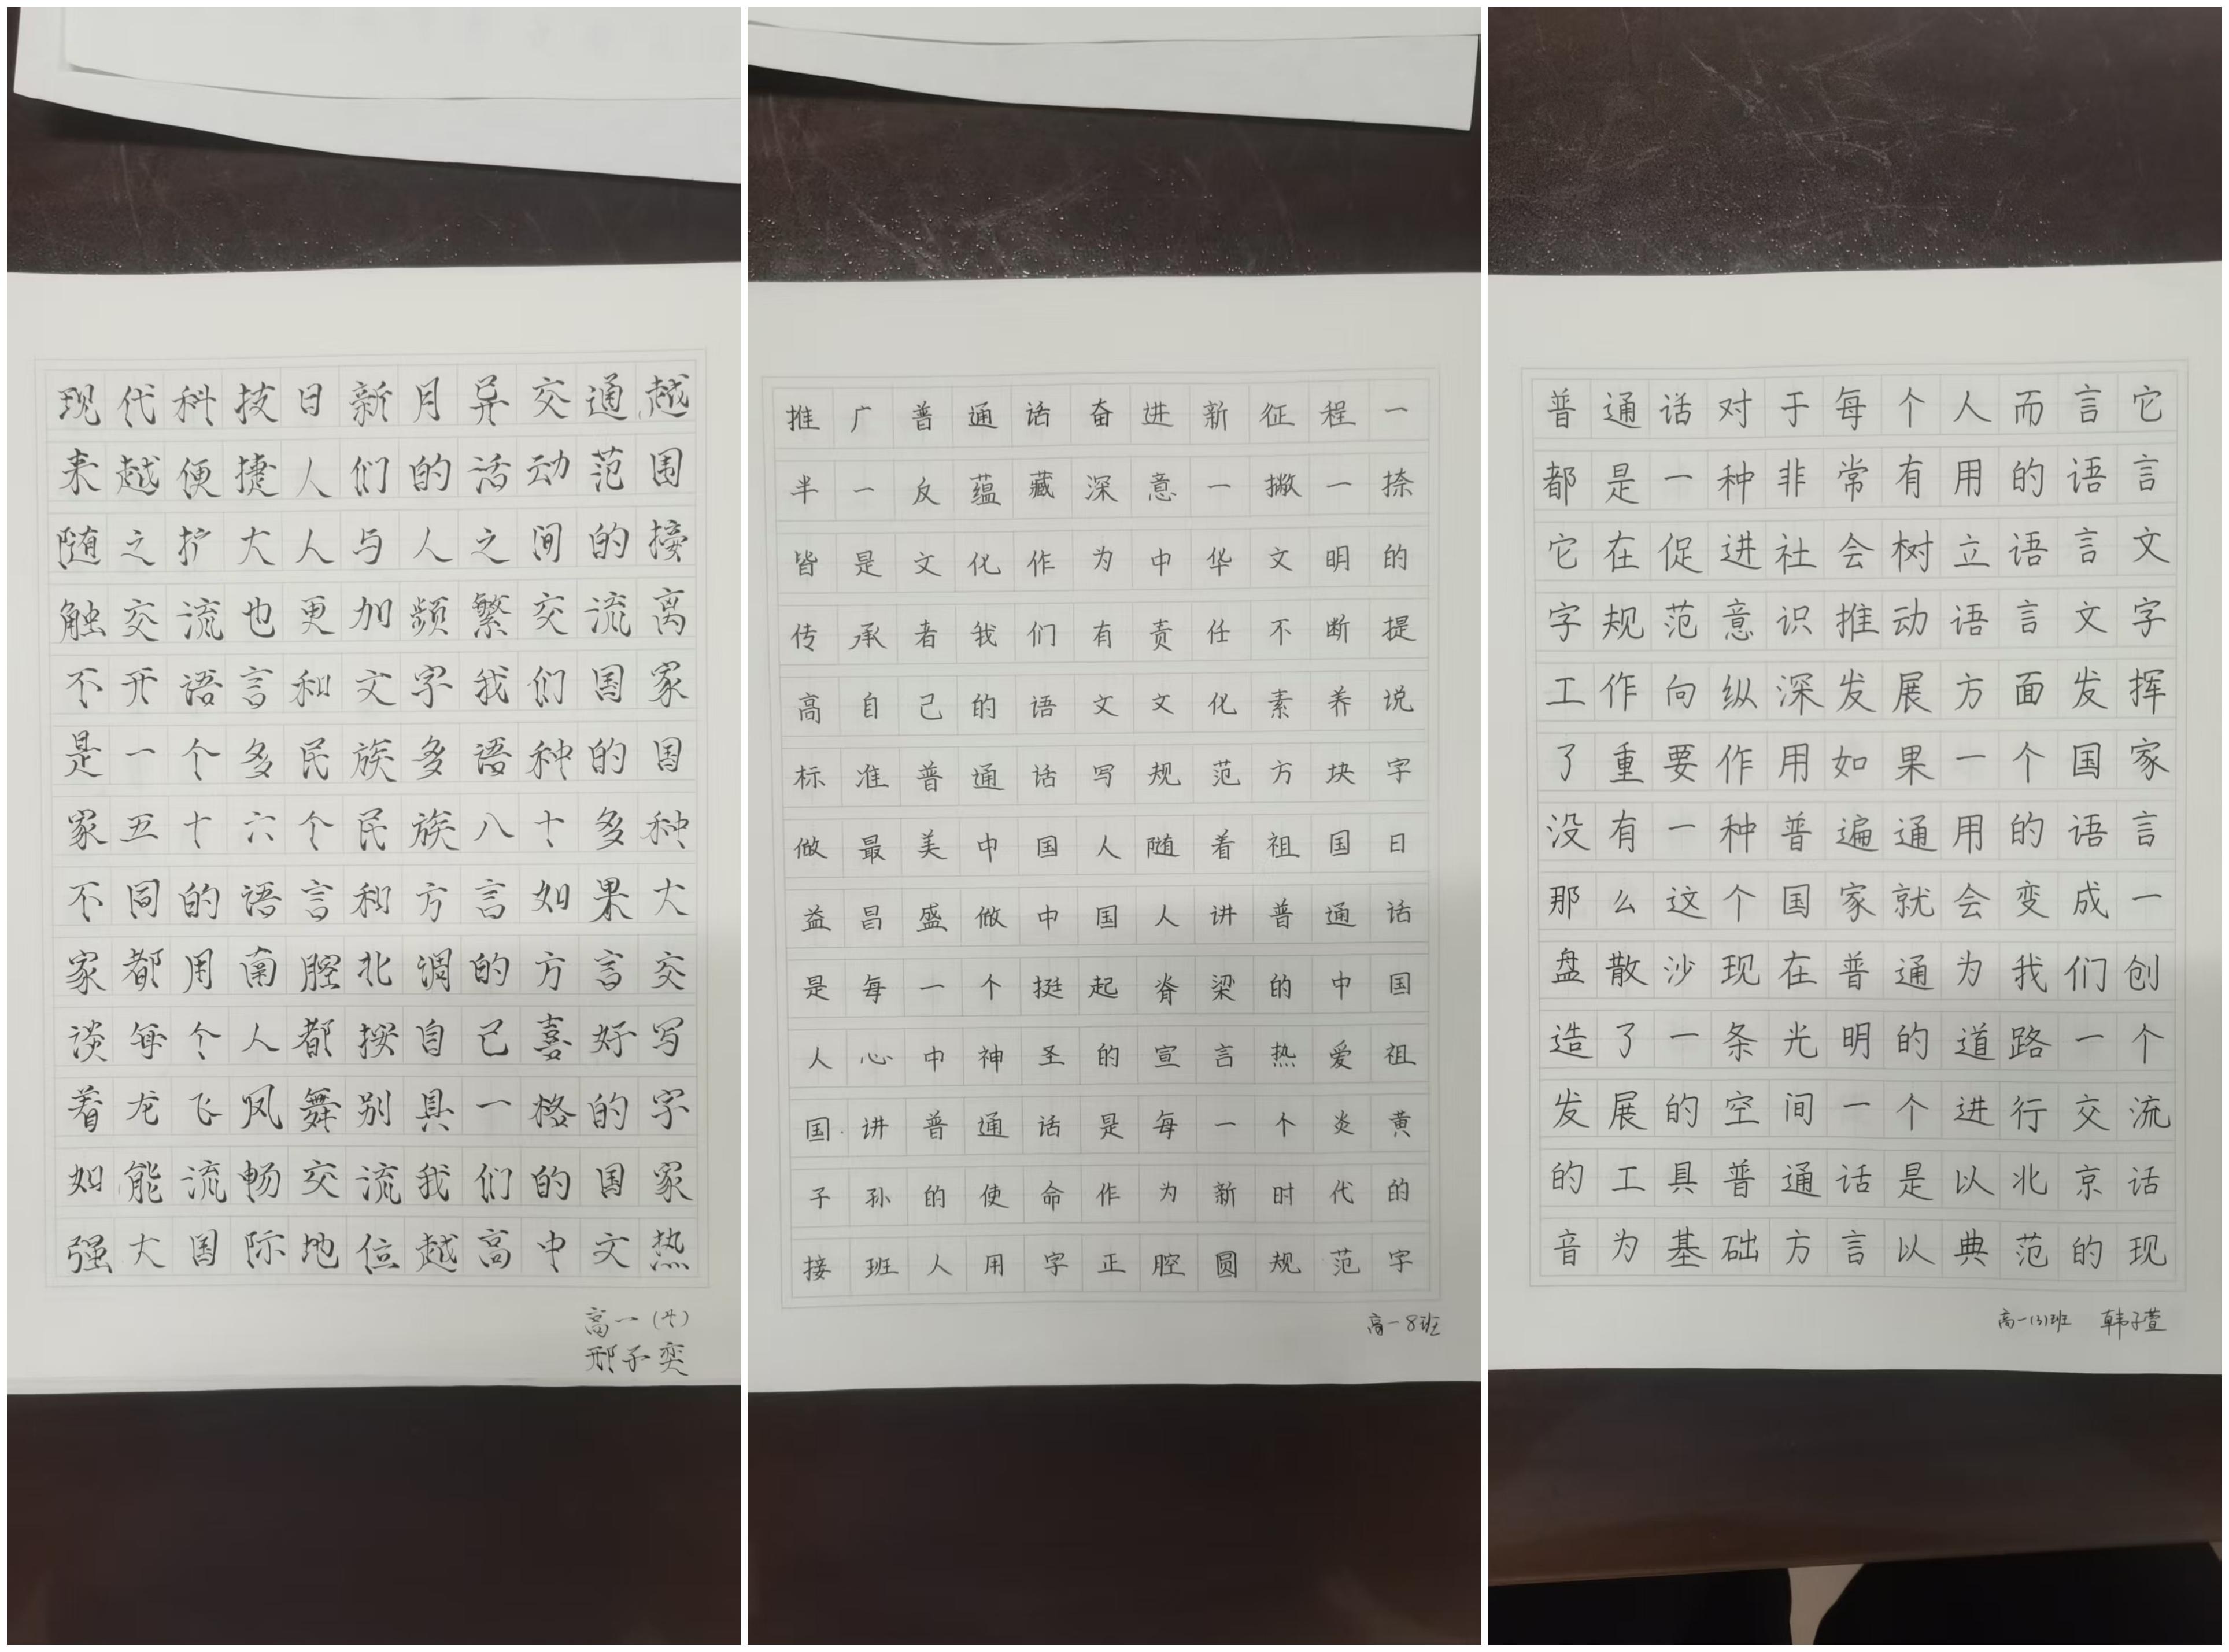 现代科技日新月异交通越
来越便捷人们的活动范围
随之扩大人与人之间的接
触交流也更加频繁交流离
不开语言和文字我们国家
是一个多民族多语种的国
家五十六个民族八十多种
不同的语言和方言如果大
家都用南腔北调的方言交
谈每个人都按自己喜好写
着龙飞凤舞别具一格的字
如能流畅交流我们的国家
强大国际地位越高中文热
高一(4)
邢子奕
推广普通话奋进新征程一
半一反蕴藏深意一撇一捺
皆是文化作为中华文明的
传承者我们有责任不断提
高自己的语文文化素养说
标准普通话写规范方块字
做最美中国人随着祖国日
益昌盛做中国人讲普通话
是每一个挺起脊梁的中国
人心中神圣的宣言热爱祖
国讲普通话是每一个炎黄
子孙的使命作为新时代的
接班人用字正腔圆规范字
高一8班
普通话对于每个人而言它
都是一种非常有用的语言
它在促进社会树立语言文
字规范意识推动语言文字
工作向纵深发展方面发挥
了重要作用如果一个国家
没有一种普遍通用的语言
那么这个国家就会变成一
盘散沙现在普通为我们创
造了一条光明的道路一个
发展的空间一个进行交流
的工具普通话是以北京话
音为基础方言以典范的现
高一(3)班 韩子萱